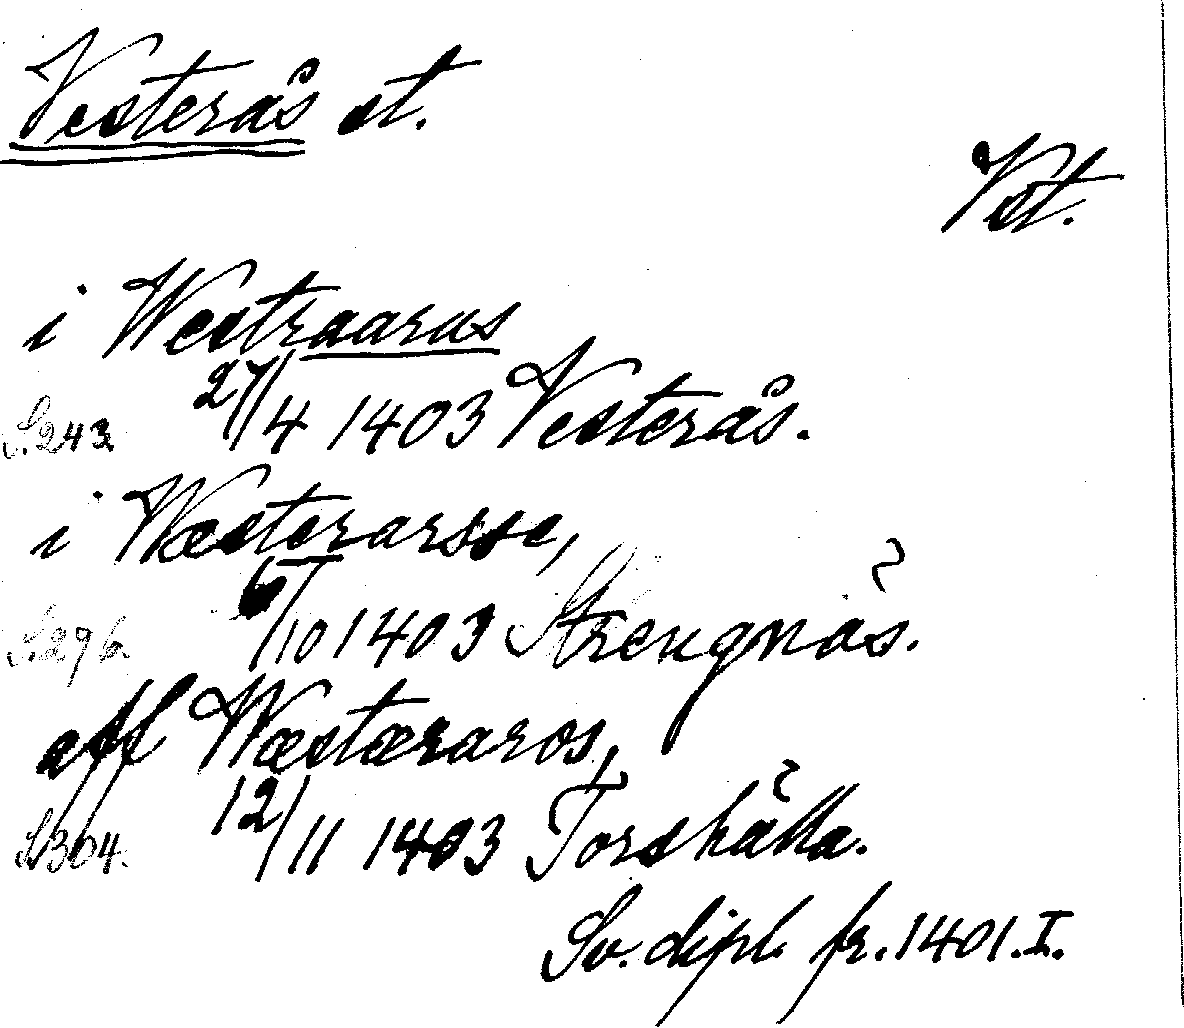 Vesterås st.
Vst.
i Westraarus
S. 243. 27/4 1403 Vesterås.
i Wæsterarsse,
S. 296. 6/10 1403 Strengnäs.
aff Wæstæraros,
S. 304. 12/11 1403 Torshälla.
Sv. dipl. fr. 1401. I.